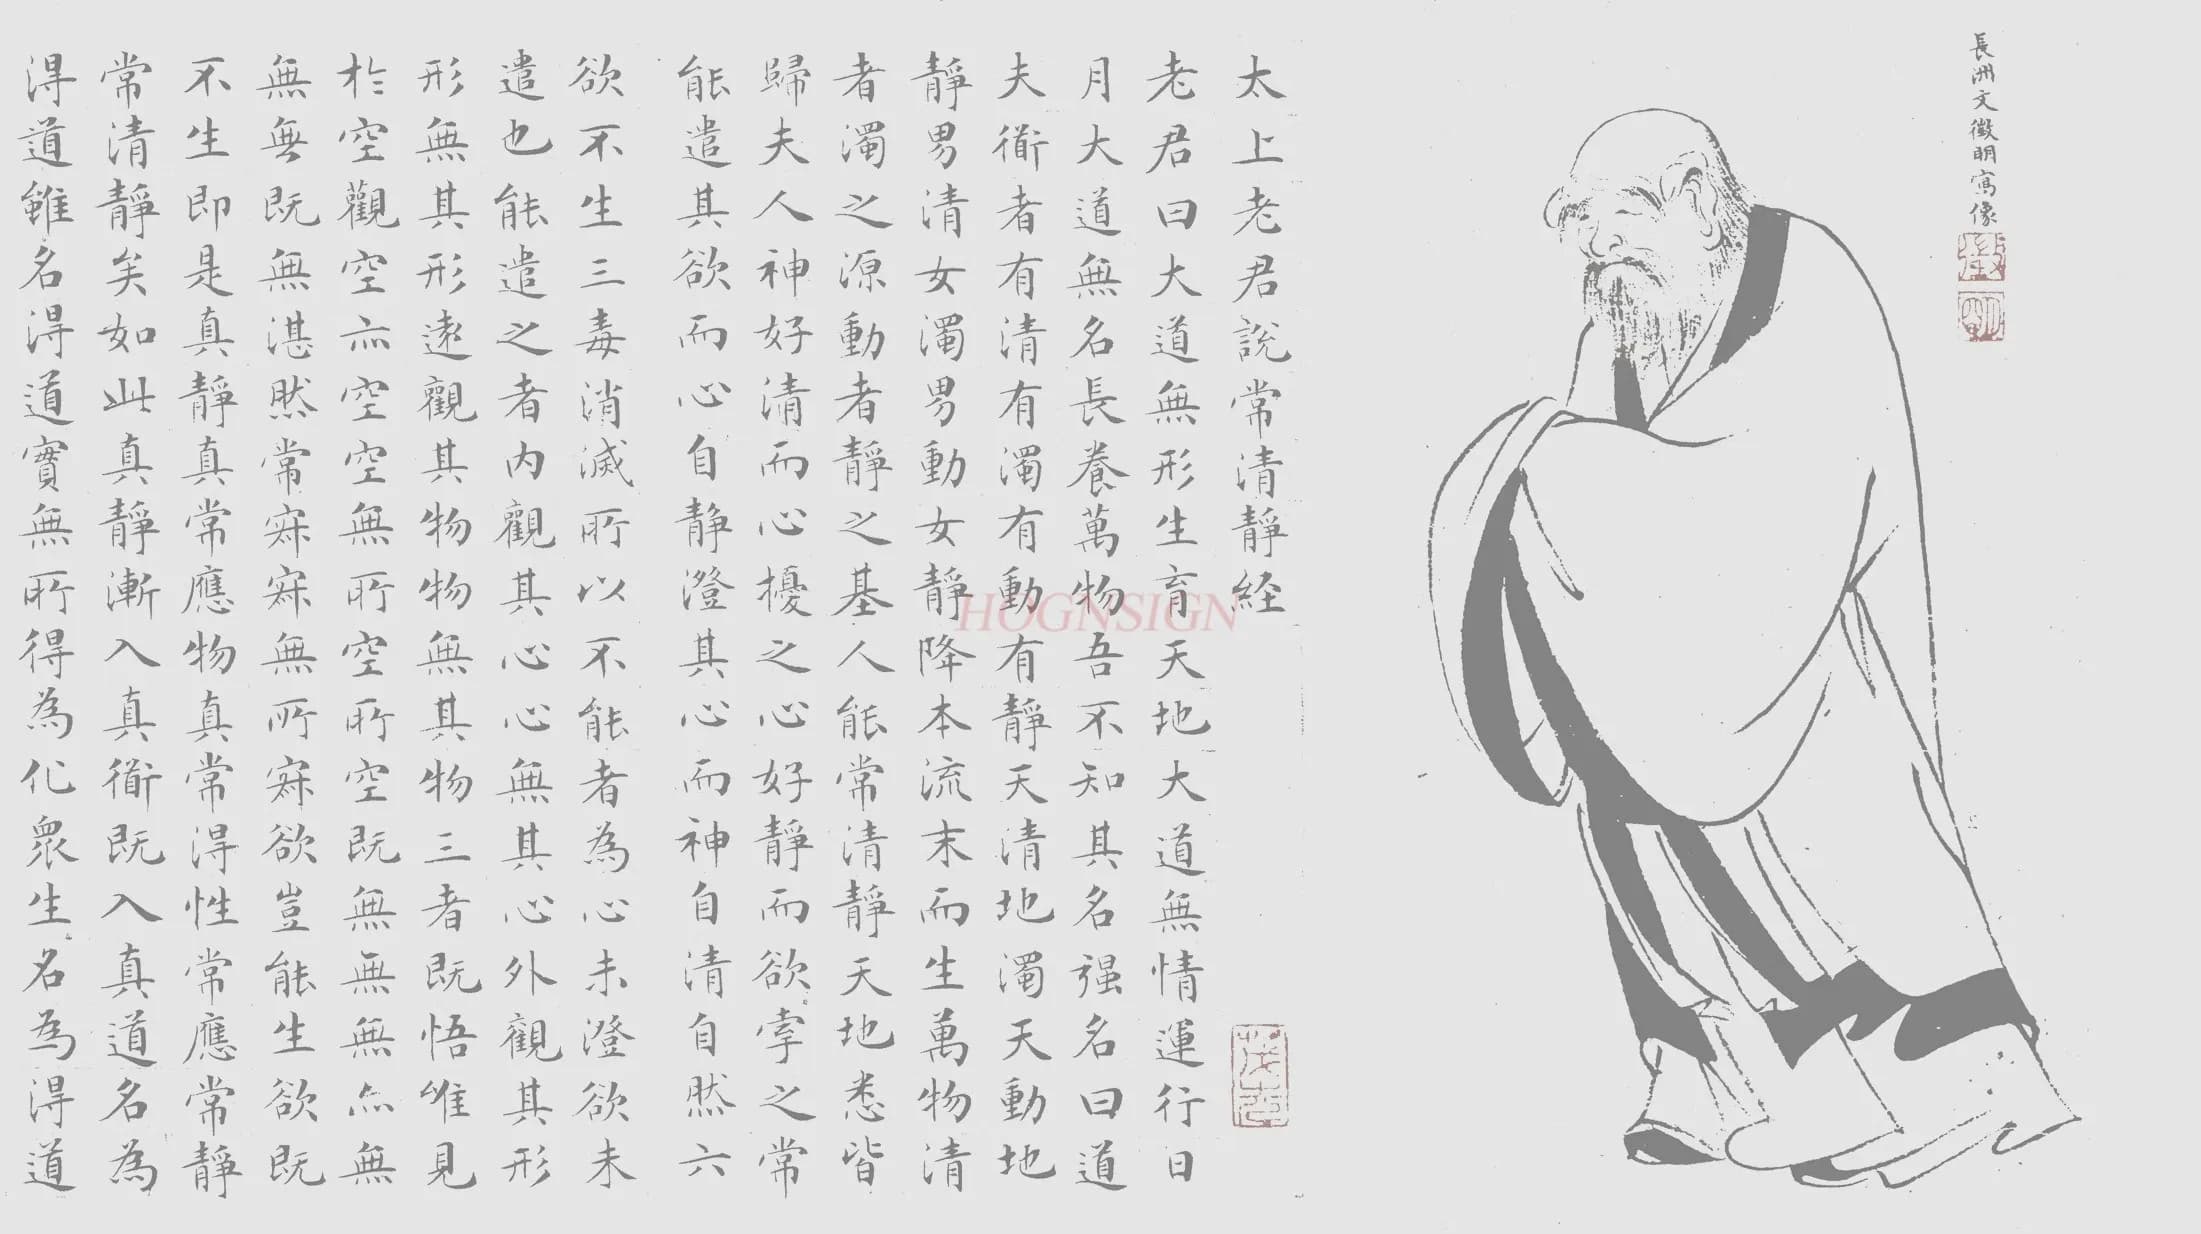 長洲文徵明寫像
徵
明
太上老君說常清靜経
茂苑
老君曰大道無形生育天地大道無情運行日
月大道無名長養萬物吾不知其名强名曰道
夫衜者有清有濁有動有靜天清地濁天動地
靜男清女濁男動女靜降本流末而生萬物清
者濁之源動者靜之基人能常清靜天地悉皆
歸夫人神好清而心擾之心好靜而欲牽之常
能遣其欲而心自静澄其心而神自清自然六
欲不生三毒消滅所以不能者為心未澄欲未
遣也能遣之者内觀其心心無其心外觀其形
形無其形遠觀其物物無其物三者既悟唯見
於空觀空亦空空無所空所空既無無無亦無
無無既無湛然常寂寂無所寂欲豈能生欲既
不生即是真靜真常應物真常得性常應常靜
常清靜矣如此真靜漸入真衜既入真道名為
得道雖名得道實無所得為化衆生名為得道
HOGNSIGN